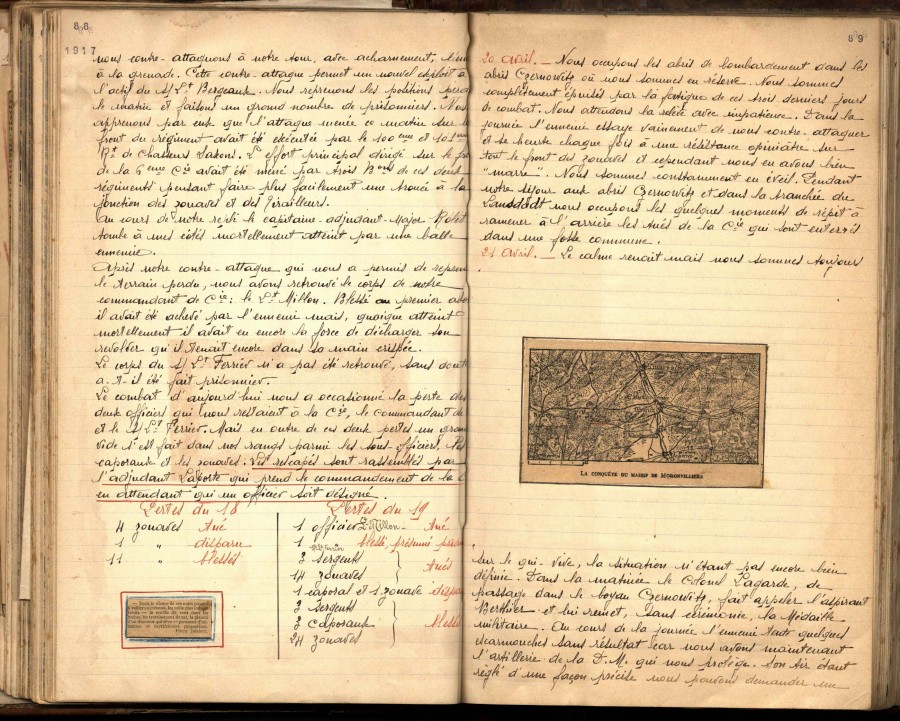 88
1917
nous contre-attaquons à notre tour, avec acharnement, l'en
à la grenade. Cette contre-attaque permet un nouvel exploit à
l'actif du S/Lt Bergeaux. Nous reprenons les positions perd
le matin et faisons un grand nombre de prisonniers. Nous
apprenons par eux que l'attaque menée ce matin sur le
front du régiment avait été exécutée par le 100eme et 102eme
Rt de Chasseurs Saxons. L'effort principal dirigé sur le fr
de la 6eme Cie avait été mené par trois Bons de ces deux
régiments pensant faire plus facilement une trouée à la
jonction des zouaves et des tirailleurs.
Au cours de notre repli le capitaine-adjudant-Major
tombe à mes côtés mortellement atteint par une balle
ennemie.
Après notre contre-attaque qui nous a permis de repren
le terrain perdu, nous avons retrouvé le corps de notre
commandant de Cie: le Lt Millon. Blessé au premier abo
il avait été achevé par l'ennemi mais, quoique atteint
mortellement il avait eu encore la force de décharger son
revolver qu'il tenait encore dans sa main crispée.
Le corps du S/Lt Ferrier n'a pas été retrouvé, sans dout
a-t-il été fait prisonnier.
Le combat d'aujourd'hui nous a occasionné la perte des
deux officiers qui nous restait à la Cie, le commandant de
et le S/Lt Ferrier. Mais en outre de ces deux pertes un gran
vide s'est fait dans nos rangs parmi les sous-officiers, les
caporaux et les zouaves. Les rescapés sont rassemblés par
l'adjudant Laporte qui prend le commandement de la C
en attendant qu'un officier soit désigné.
Pertes du 18
4 zouaves tué
1 " disparu
11 " blessés
Pertes du 19
1 officier Lt Millon - tué
1 S/Lt Ferrier blessé, présumé prison
3 sergents
14 zouaves } tués
1 caporal et 1 zouave dispa
3 sergents
3 caporaux } blessé
24 zouaves
89
20 avril. - Nous occupons les abris de bombardement dans les
abris Czernowitz où nous sommes en réserve. Nous sommes
complètement épuisés par la fatigue de ces trois derniers jours
de combat. Nous attendons la relève avec impatience. Dans la
journée l'ennemi essaye vainement de nous contre-attaquer
et se heurte chaque fois à une résistance opiniâtre sur
tout le front des zouaves et cependant nous en avons bien
"marre". Nous sommes constamment en éveil. Pendant
notre séjour aux abris Czernowitz et dans la tranchée du
Landstadt nous occupons les quelques moments de répit à
ramener à l'arrière les tués de la Cie qui sont enterrés
dans une fosse commune.
21 avril. - Le calme renait mais nous sommes toujours
LA CONQUÊTE DU MASSIF DE MORONVILLIERS
sur le qui-vive, la situation n'étant pas encore bien
définie. Dans la matinée le Colonel Lagarde, de
passage dans le boyau Czernowitz, fait appeler l'aspirant
Berthier et lui remet, sans cérémonie, la Médaille
militaire. Au cours de la journée l'ennemi tente quelques
escarmouches sans résultat car nous avons maintenant
l'artillerie de la D.M. qui nous protège. Son tir étant
réglé d'une façon précise nous pouvons demander un